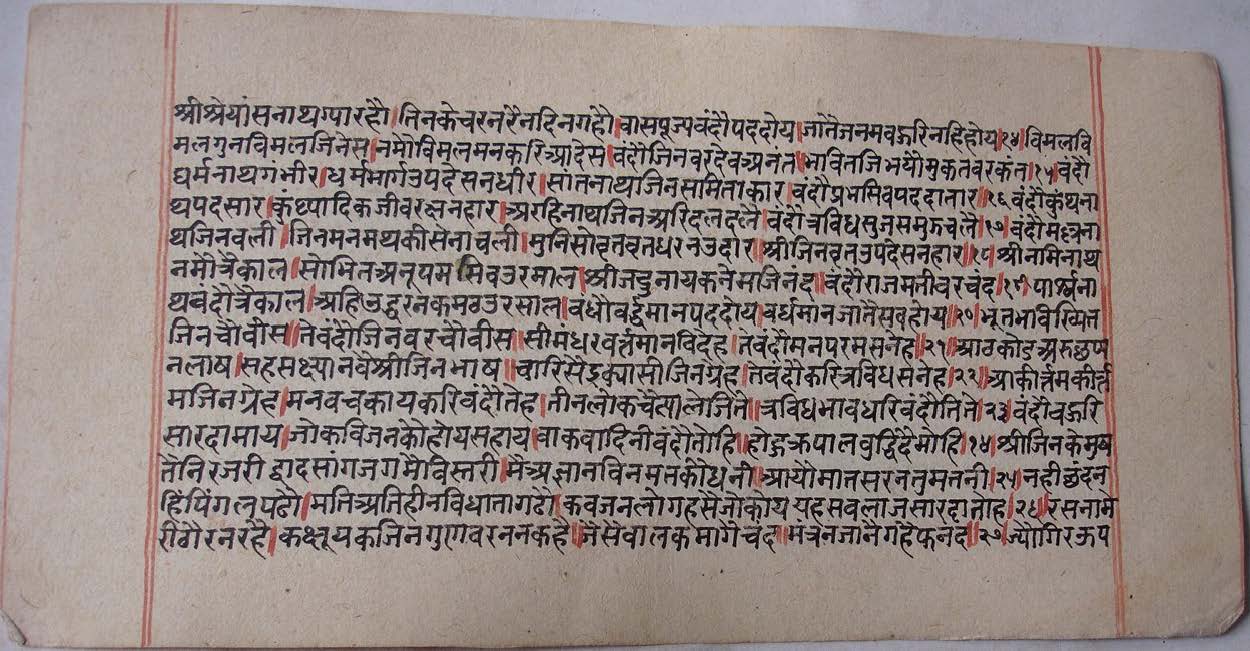 श्रीश्रेयांसनाथग्पारहौ।तिनकेचरनरैनदिनगहौ।वासपूज्यवंदौपददोय।जातैजनमवऊरिनहिहोय।१४।विमलवि
मलगुनविमलजिनेस।नमोविमलमनकरिआदेस।वंदौजिनवरदेवअनंत।भावितजिभयौमुकतवरकंत।१५।वंदौ
धर्मनाथगंभीर।धर्ममार्गउपदेसनधीर।सांतनाथजिनसामिताकार।वंदौप्रभसिवपददातार।१६वंदौकुंथना
थपदसार।कुंथ्वादिकजीवरक्षनहार।अरहिनाथजिनअरिदलदलै।वंदौत्रविधसुजसमुरुचलै।१७।वंदौमल्लना
थजिनवली।जिनमनमथकीसेनाचली।मुनिसोवृतवृतधरनउदार।श्रीजिनवृतउपदेसनहार।१८।श्रीनामिनाथ
नमौत्रैकाल।सोभितअनूपमसिवउरमाल।श्रीजदुनायकनेमजिनंद।वंदौराजमतीवरचंद।१९।पार्श्वना
थवंदौत्रैकाल।अहिउद्धरनकमठउरसाल।वंधौवर्द्धमानपददोय।वर्धमानजातैसवहोय।२०।भूतभाविष्यित
जिनचौवीस।तेवंदौजिनवरचौवीस।सीमंधरवर्त्तमानविदेह।तेवंदौमनपरमसनेह।२१।आठकोडअरुछप्प
नलाष।सहसत्यानवेश्रीजिनभाष।चारिसैइक्यासीजिनग्रेह।तेवंदौकरित्रविधसनेह।२२।आकीर्त्तमकीर्त्त
मजिनग्रेह।मनवचकायकरिवंदौतेह।तीनलोकचैत्यालेजिते।त्रविधभावधरिवंदौतिते।२३।वंदौवऊरि
सारदामाय।जोकविजनकौहोयसहाय।वाकवादिनीवंदौतोहि।होऊक्रपालवुद्धिदेमोहि।२४।श्रीजिनकेमुष
तैनिरजरी।द्वादसांगजगमैविस्तरी।मैअज्ञानविनमतकौधनी।आयौमातसरनतुमतनी।२५।नहीछंदन
हिपिंगलपढौ।मतिअतिहीनविधातागढो।कवजनलोगहसैजोकोय।यहसवलाजसारदातोह।२६।रसनामे
रीठौरनरहै।कक्षूयकजिनगुणवरननकहै।जैसेवालकमागैचंद।मंत्रनजानैगहैफनंद।२७।ज्यौगिरऊप